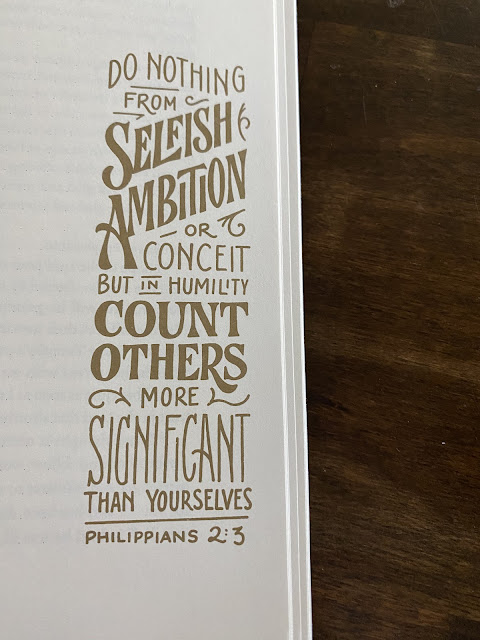 DO NOTHING
FROM
SELFISH
AMBITION
OR
CONCEIT
BUT IN HUMILITY
COUNT
OTHERS
MORE
SIGNIFICANT
THAN YOURSELVES
PHILIPPIANS 2:3